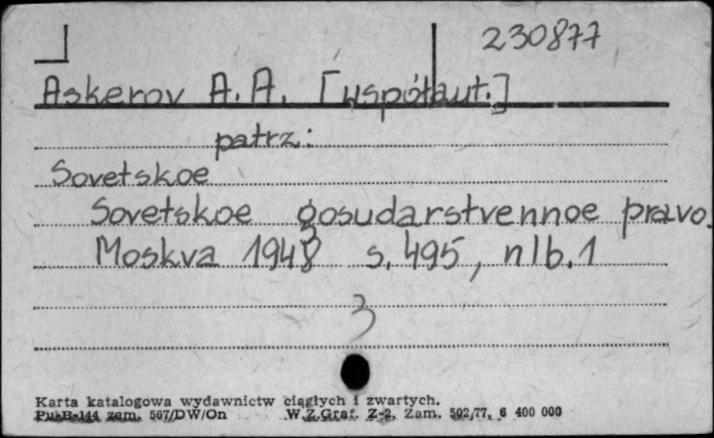 230877
Askerov A. A. [współaut.]
patrz:
Sovetskoe
Sovetskoe gosudarstvennoe pravo.
Moskva 1948 s. 495, nlb. 1
3
Karta katalogowa wydawnictw ciągłych i zwartych.
Pu-B-144 zam. 567/DW/On W.Z.Graf. Z-2. Zam. 502/77. 6 400 000